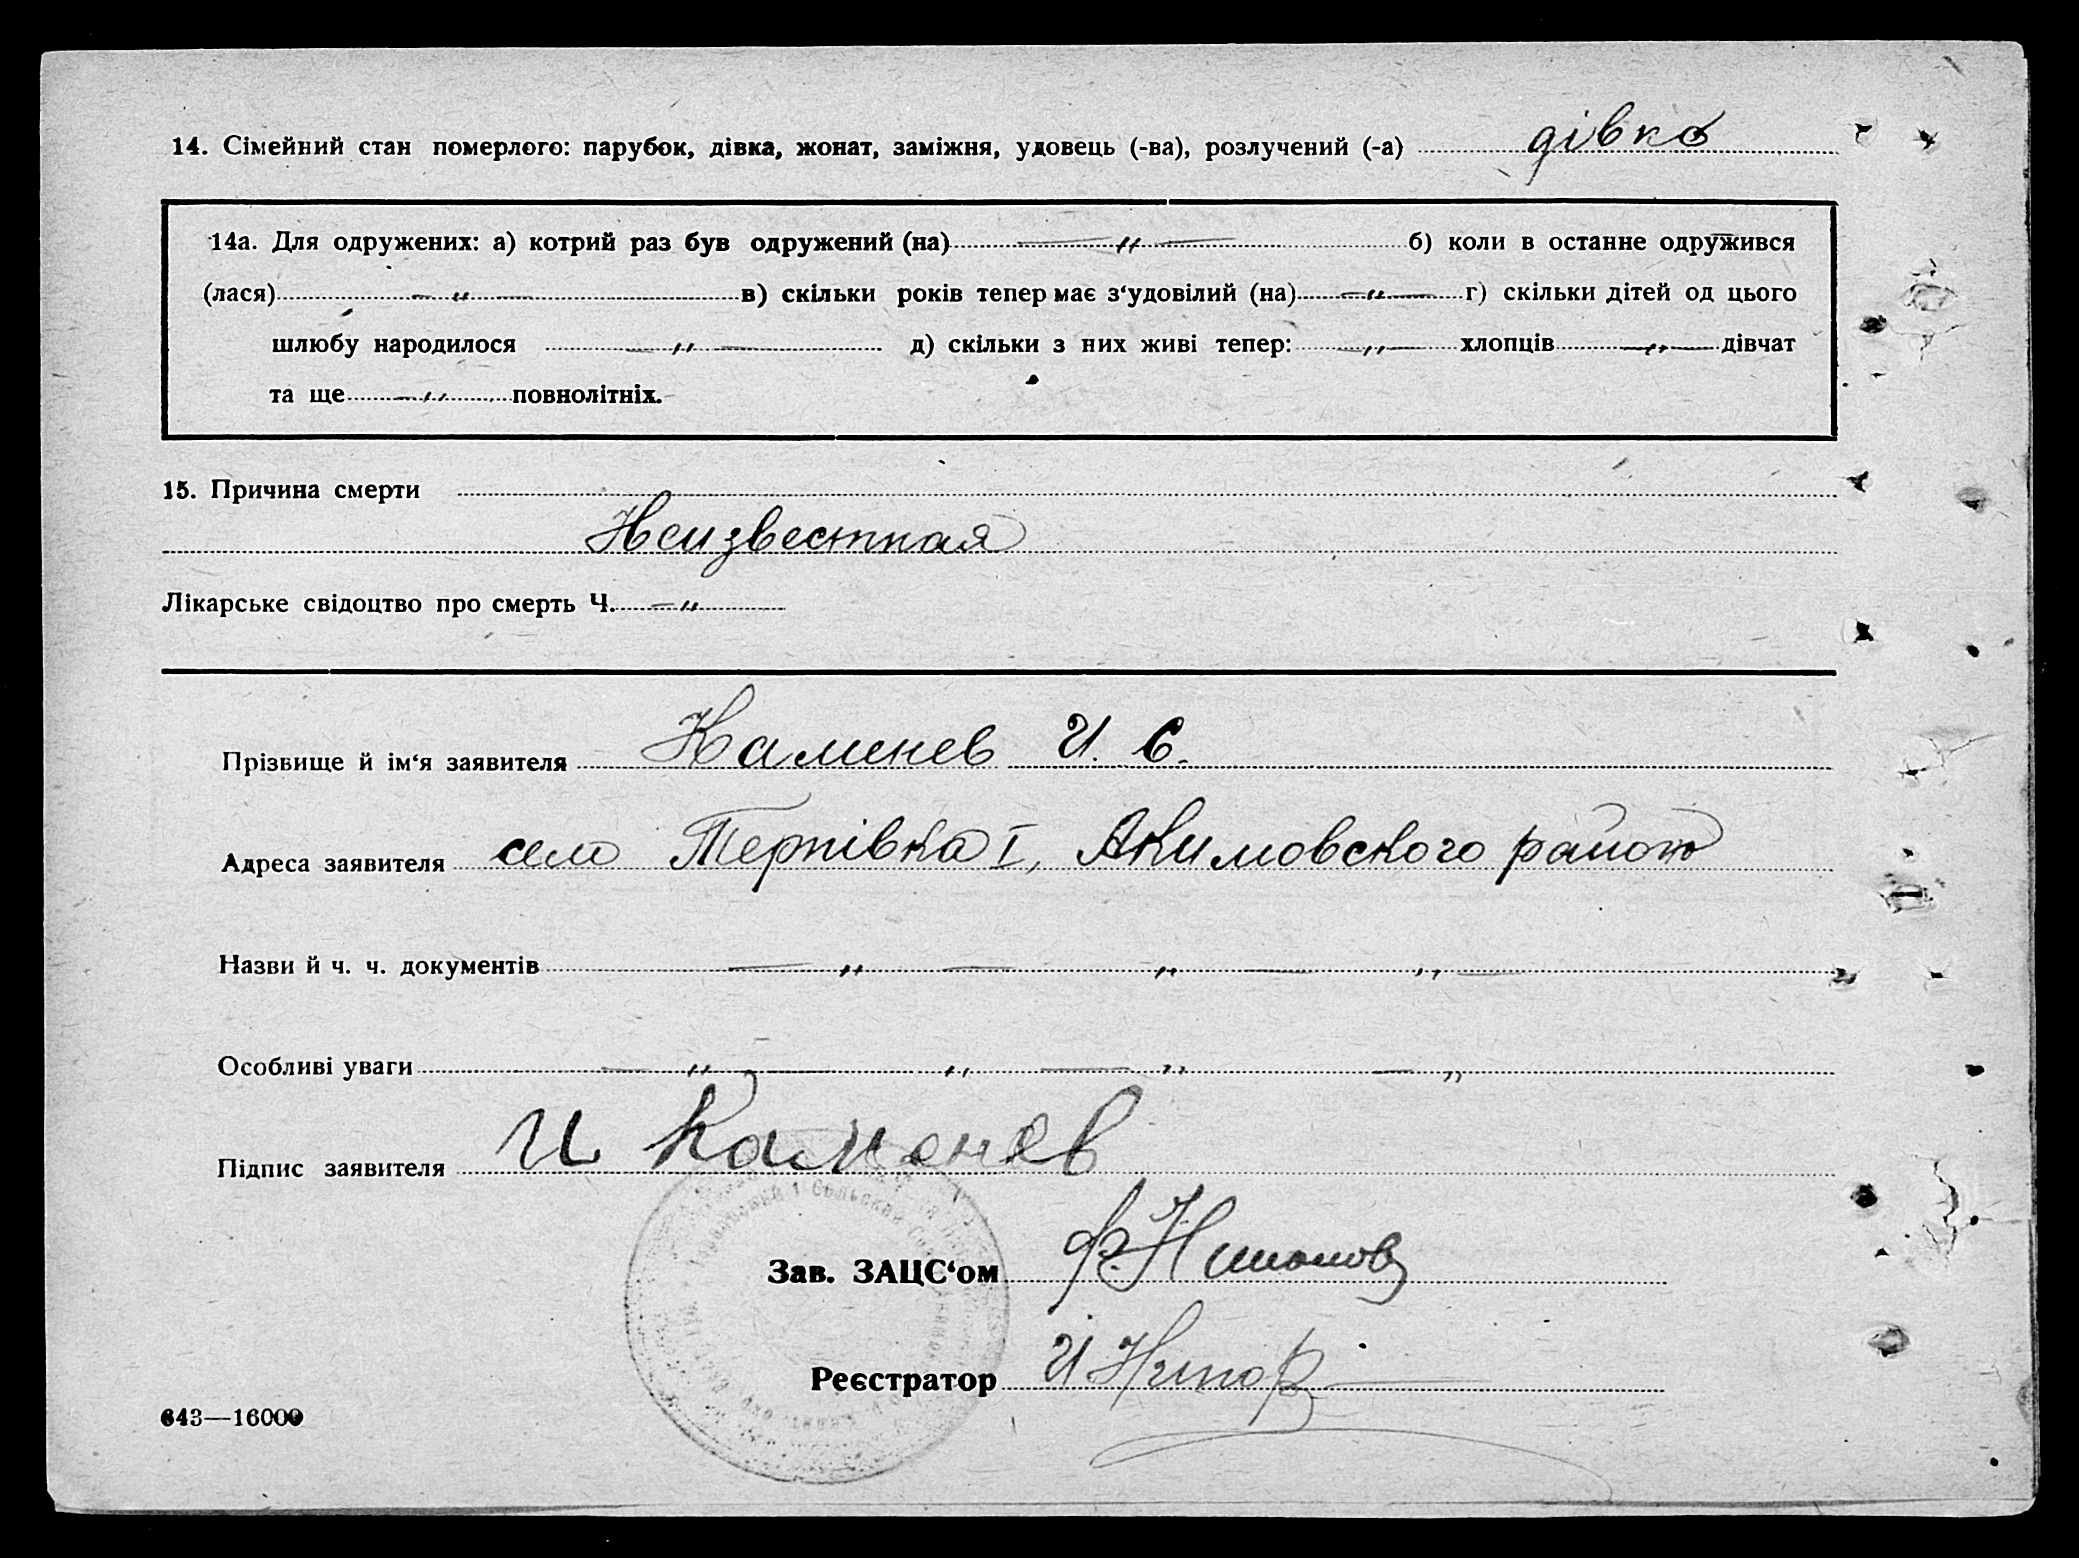 14. Сімейний стан померлого: парубок, дівка, жонат, заміжня, удовець (-ва), розлучений (-а) дівка
14а. Для одружених: а) котрий раз був одружений (на) — „ — б) коли в останне одружився
(лася) — „ — в) скільки років тепер має з‘удовілий (на) — „ — г) скільки дітей од цього
шлюбу народилося — „ — д) скільки з них живі тепер: — „ — хлопців — „ — дівчат
та ще — „ повнолітніх.
15. Причина смерти
Неизвестная
Лікарське свідоцтво про смерть Ч. — „
Прізвище й ім‘я заявителя Каменев И. С.
Адреса заявителя село Терпівка І, Акимовского району
Назви й ч. ч. документів — „ — „ — „ —
Особливі уваги — „ — „ — „ — „
Підпис заявителя И Каменев
Зав. ЗАЦС‘ом
Реєстратор
643—16000